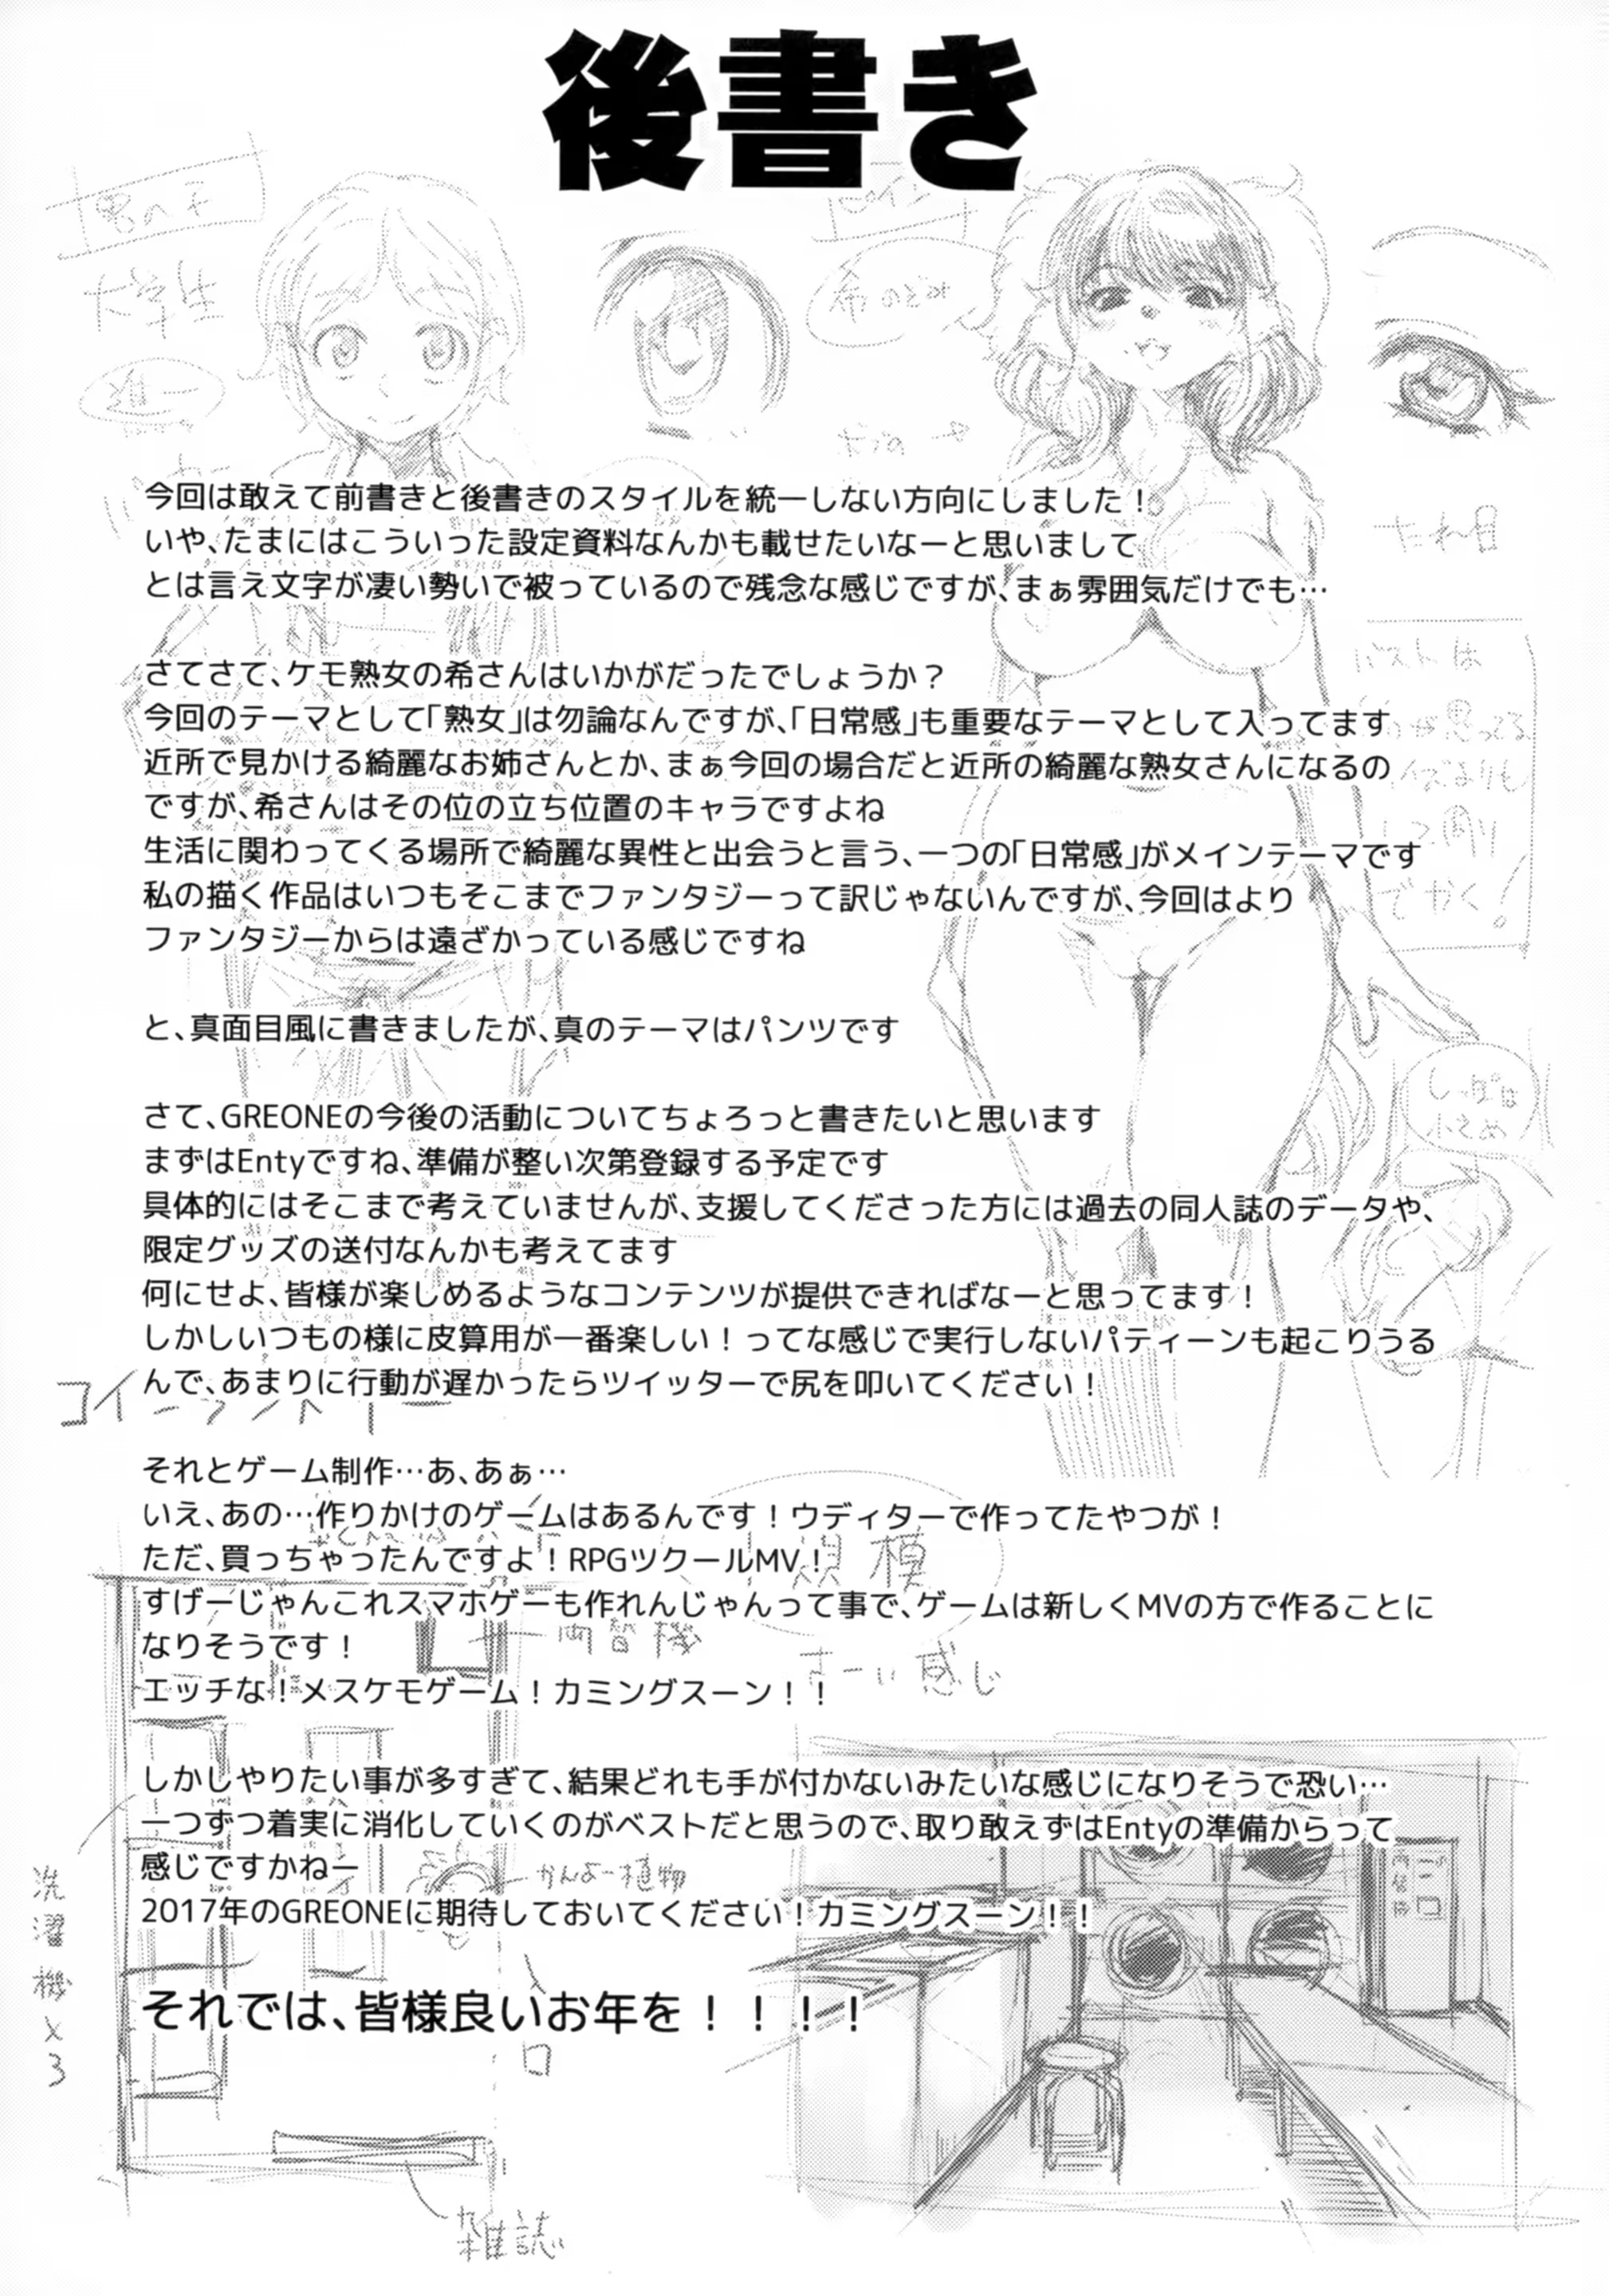 後書き
男の子
大学生
進一
ヒロイン
希 のぞみ
たれ目
今回は敢えて前書きと後書きのスタイルを統一しない方向にしました！
いや、たまにはこういった設定資料なんかも載せたいなーと思いまして
とは言え文字が凄い勢いで被っているので残念な感じですが、まぁ雰囲気だけでも…
バストは
思ってる
でかく！
さてさて、ケモ熟女の希さんはいかがだったでしょうか？
今回のテーマとして「熟女」は勿論なんですが、「日常感」も重要なテーマとして入ってます
近所で見かける綺麗なお姉さんとか、まぁ今回の場合だと近所の綺麗な熟女さんになるの
ですが、希さんはその位の立ち位置のキャラですよね
生活に関わってくる場所で綺麗な異性と出会うと言う、一つの「日常感」がメインテーマです
私の描く作品はいつもそこまでファンタジーって訳じゃないんですが、今回はより
ファンタジーからは遠ざかっている感じですね
と、真面目風に書きましたが、真のテーマはパンツです
しっぽは
小さめ
さて、GREONEの今後の活動についてちょろっと書きたいと思います
まずはEntyですね、準備が整い次第登録する予定です
具体的にはそこまで考えていませんが、支援してくださった方には過去の同人誌のデータや、
限定グッズの送付なんかも考えてます
何にせよ、皆様が楽しめるようなコンテンツが提供できればなーと思ってます！
しかしいつもの様に皮算用が一番楽しい！ってな感じで実行しないパティーンも起こりうる
んで、あまりに行動が遅かったらツイッターで尻を叩いてください！
コインランドリー
それとゲーム制作…あ、あぁ…
いえ、あの…作りかけのゲームはあるんです！ウディターで作ってたやつが！
ただ、買っちゃったんですよ！RPGツクールMV！
すげーじゃんこれスマホゲーも作れんじゃんって事で、ゲームは新しくMVの方で作ることに
なりそうです！
エッチな！メスケモゲーム！カミングスーン！！
規模
両替機
感じ
しかしやりたい事が多すぎて、結果どれも手が付かないみたいな感じになりそうで恐い…
一つずつ着実に消化していくのがベストだと思うので、取り敢えずはEntyの準備からって
感じですかねー
2017年のGREONEに期待しておいてください！カミングスーン！！
かんよー植物
洗濯機×3
入口
それでは、皆様良いお年を！！！！
雑誌